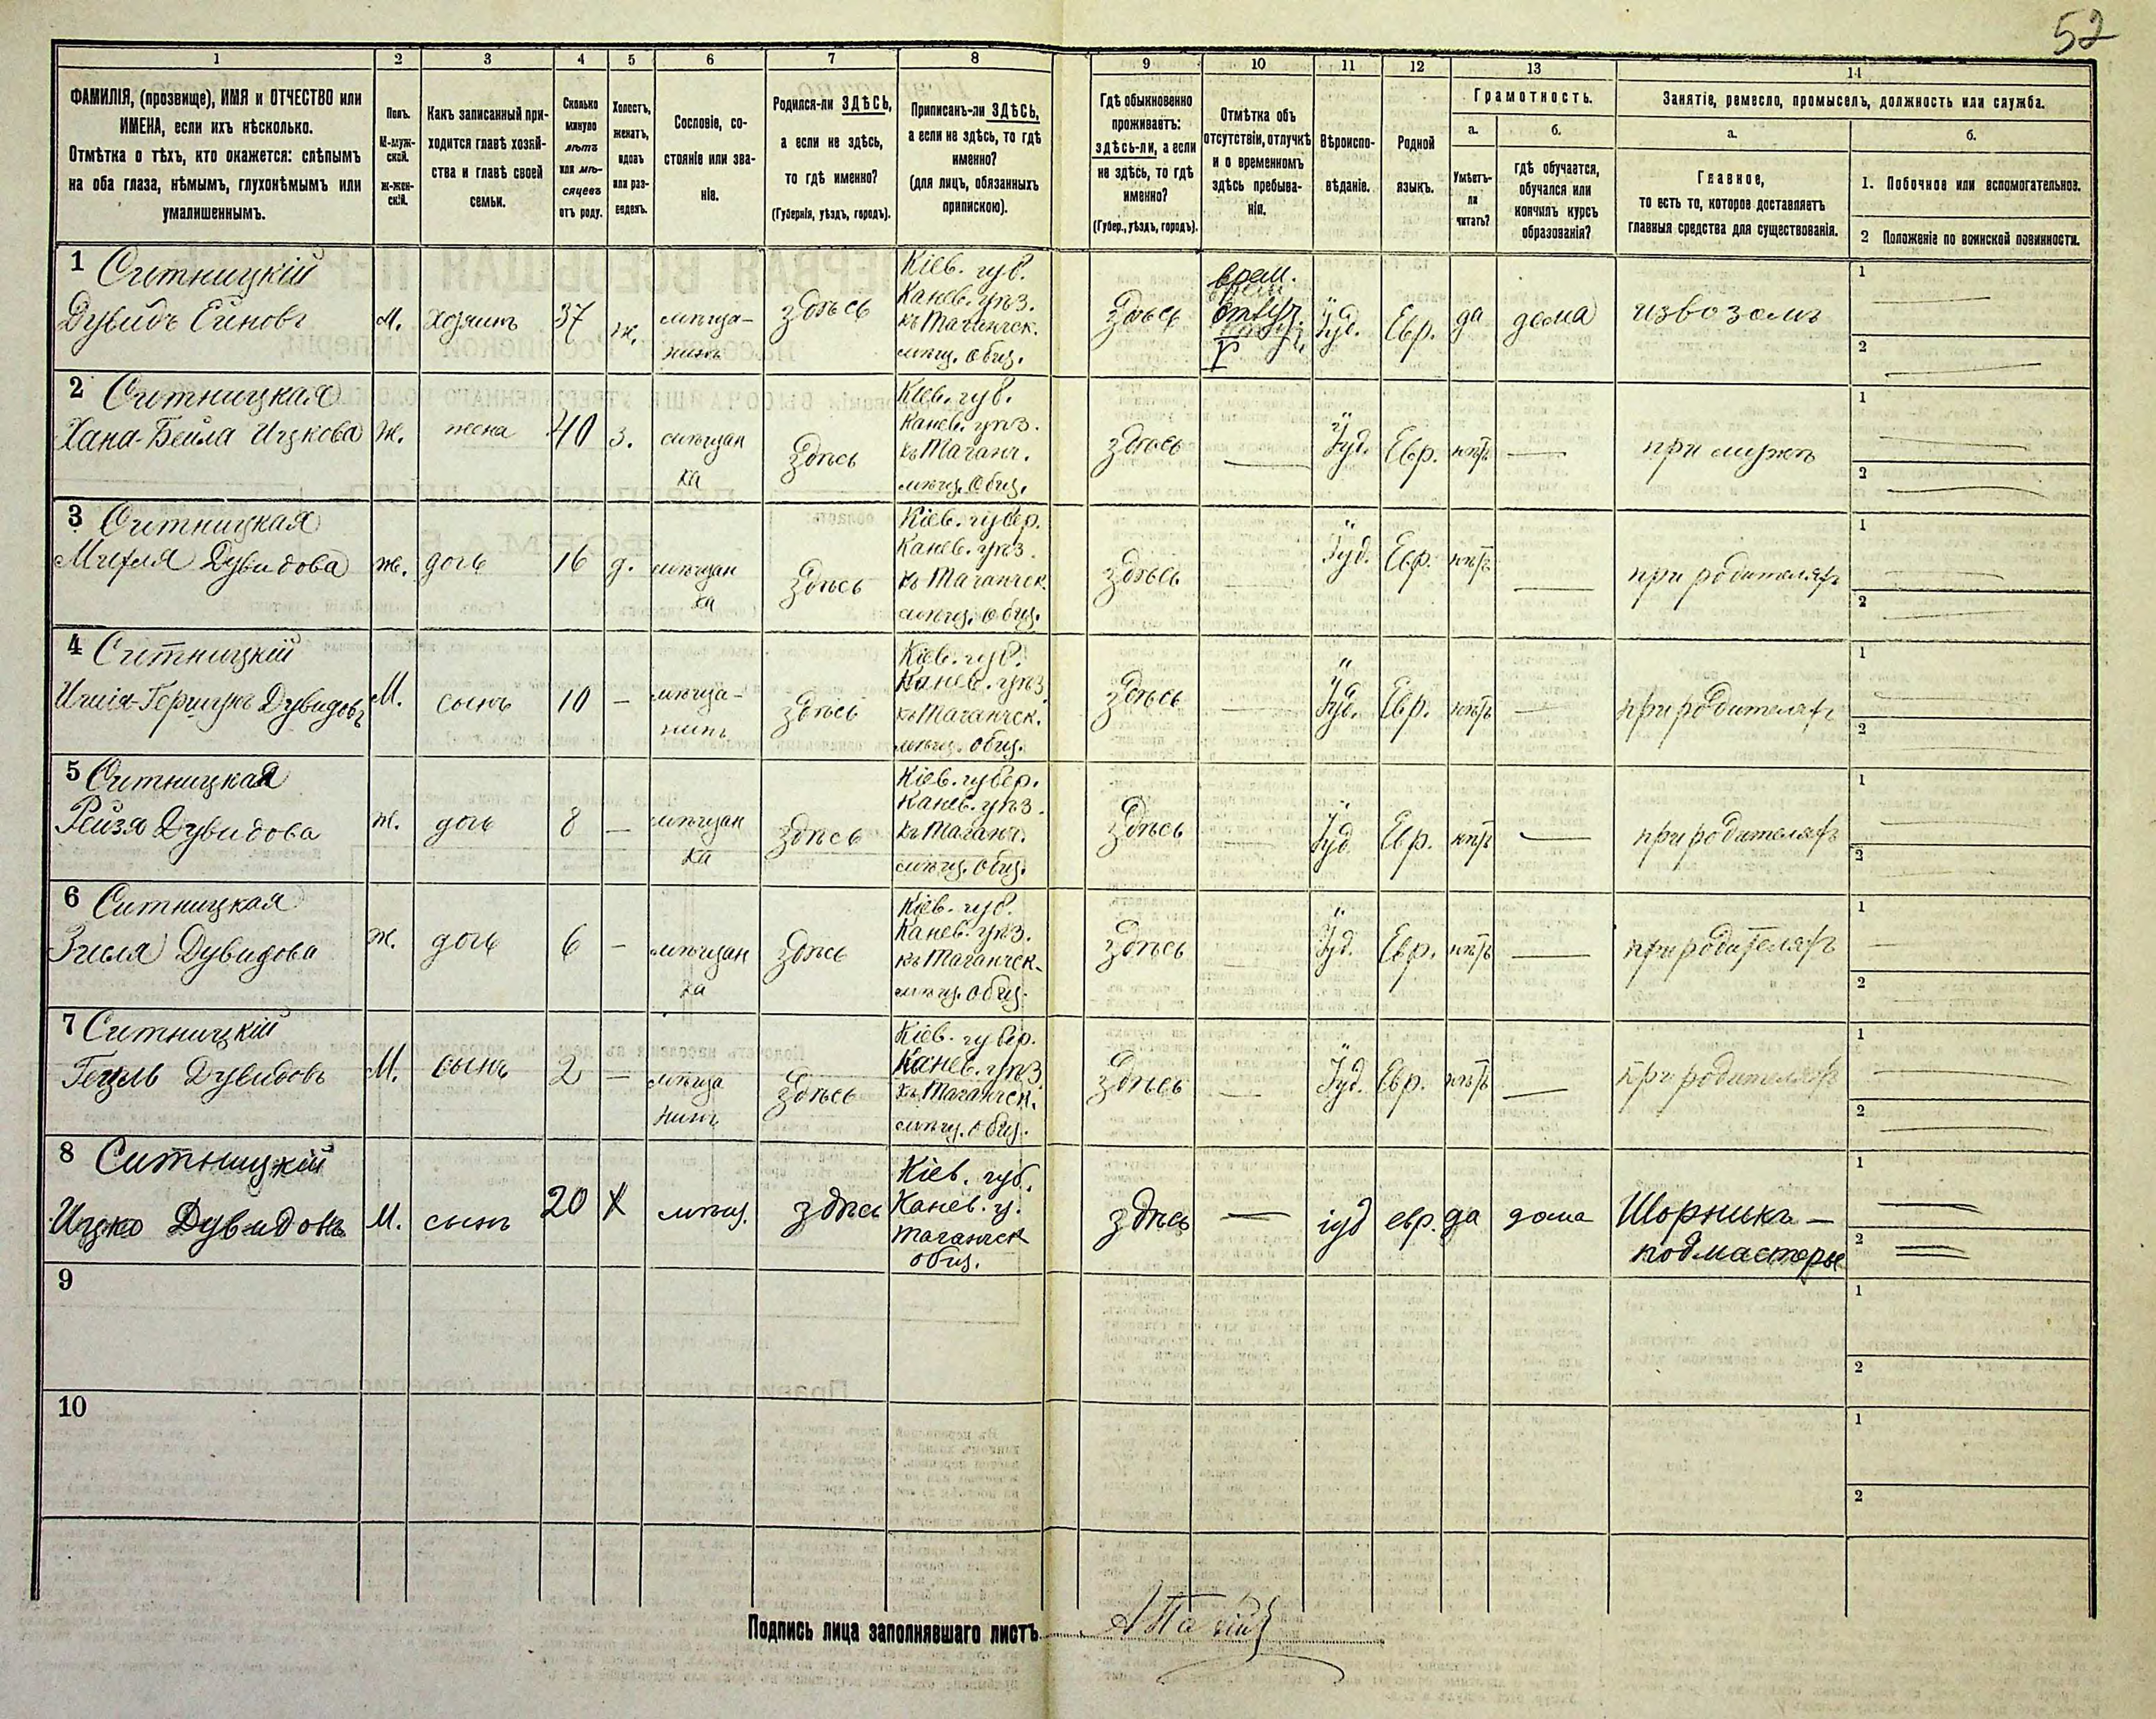 52
1 2 3 4 5 6 7 8 9 10 11 12 13 14
ФАМИЛІЯ, (прозвище), ИМЯ и ОТЧЕСТВО или
ИМЕНА, если ихъ нѣсколько.
Отмѣтка о тѣхъ, кто окажется: слѣпымъ
на оба глаза, нѣмымъ, глухонѣмымъ или
умалишеннымъ.
Полъ.
М-муж-
ской.
Ж-жен-
скій.
Какъ записанный при-
ходится главѣ хозяй-
ства и главѣ своей
семьи.
Сколько
минуло
лѣтъ
или мѣ-
сяцевъ
отъ роду.
Холостъ,
женатъ,
вдовъ
или раз-
веденъ.
Сословіе, со-
стояніе или зва-
ніе.
Родился-ли ЗДѢСЬ,
а если не здѣсь,
то гдѣ именно?
(Губернія, уѣздъ, городъ).
Приписанъ-ли ЗДѢСЬ,
а если не здѣсь, то гдѣ
именно?
(для лицъ, обязанныхъ
припискою).
Гдѣ обыкновенно
проживаетъ:
здѣсь-ли, а если
не здѣсь, то гдѣ
именно?
(Губер., уѣздъ, городъ).
Отмѣтка объ
отсутствіи, отлучкѣ
и о временномъ
здѣсь пребыва-
ніи.
Вѣроиспо-
вѣданіе.
Родной
языкъ.
Грамотность.
а.
Умѣетъ-
ли
читать?
б.
гдѣ обучается,
обучался или
кончилъ курсъ
образованія?
Занятіе, ремесло, промыселъ, должность или служба.
а.
Главное,
то есть то, которое доставляетъ
главныя средства для существованія.
б.
1. Побочное или вспомогательное.
2 Положеніе по воинской повинности.
1 Ситницкій
Дувидъ Ейновъ
М.
хозяинъ
37
ж.
мѣща-
нинъ
здѣсь
Кіев. губ.
Канев. уѣз.
къ Таганчск.
мѣщ. общ.
здѣсь
врем.
отлуч.
Іуд.
Евр.
да
дома
извозомъ
1
2
2 Ситницкая
Хана-Бейла Ицкова
Ж.
жена
40
з.
мѣщан
ка
здѣсь
Кіев. губ.
Канев. уѣз.
къ Таганч.
мѣщ. общ.
здѣсь
Іуд.
Евр.
нѣтъ
при мужѣ
1
2
3 Ситницкая
Дувидова
ж.
дочь
16
д.
мѣщан
ка
здѣсь
Кіев. губер.
Канев. уѣз.
къ Таганчск.
мѣщ. общ.
здѣсь
Іуд.
Евр.
нѣтъ
при родителяхъ
1
2
4 Ситницкій
Дувидовъ
М.
сынъ
10
мѣща-
нинъ
здѣсь
Кіев. губ.
Канев. уѣз.
къ Таганчск.
мѣщ. общ.
здѣсь
Іуд.
Евр.
нѣтъ
при родителяхъ
1
2
5 Ситницкая
Рейзя Дувидова
ж.
дочь
8
мѣщан
ка
здѣсь
Кіев. губер.
Канев. уѣз.
къ Таганч.
мѣщ. общ.
здѣсь
Іуд.
Евр.
нѣтъ
при родителяхъ
1
2
6 Ситницкая
Зисля Дувидова
ж.
дочь
6
мѣщан
ка
здѣсь
Кіев. губ.
Канев. уѣз.
къ Таганчск.
мѣщ. общ.
здѣсь
Іуд.
Евр.
нѣтъ
при родителяхъ
1
2
7 Ситницкій
Гецель Дувидовъ
М.
сынъ
2
мѣща
нинъ
здѣсь
Кіев. губер.
Канев. уѣз.
къ Таганчск.
мѣщ. общ.
здѣсь
Іуд.
Евр.
нѣтъ
при родителяхъ
1
2
8 Ситницкій
Ицко Дувидовъ
М.
сынъ
20
Х
мѣщ.
здѣсь
Кіев. губ.
Канев. у.
Таганчск
общ.
здѣсь
—
іуд
евр.
да
дома
Шорникъ —
подмастерье
1
2
9
1
2
10
1
2
Подпись лица заполнявшаго листъ